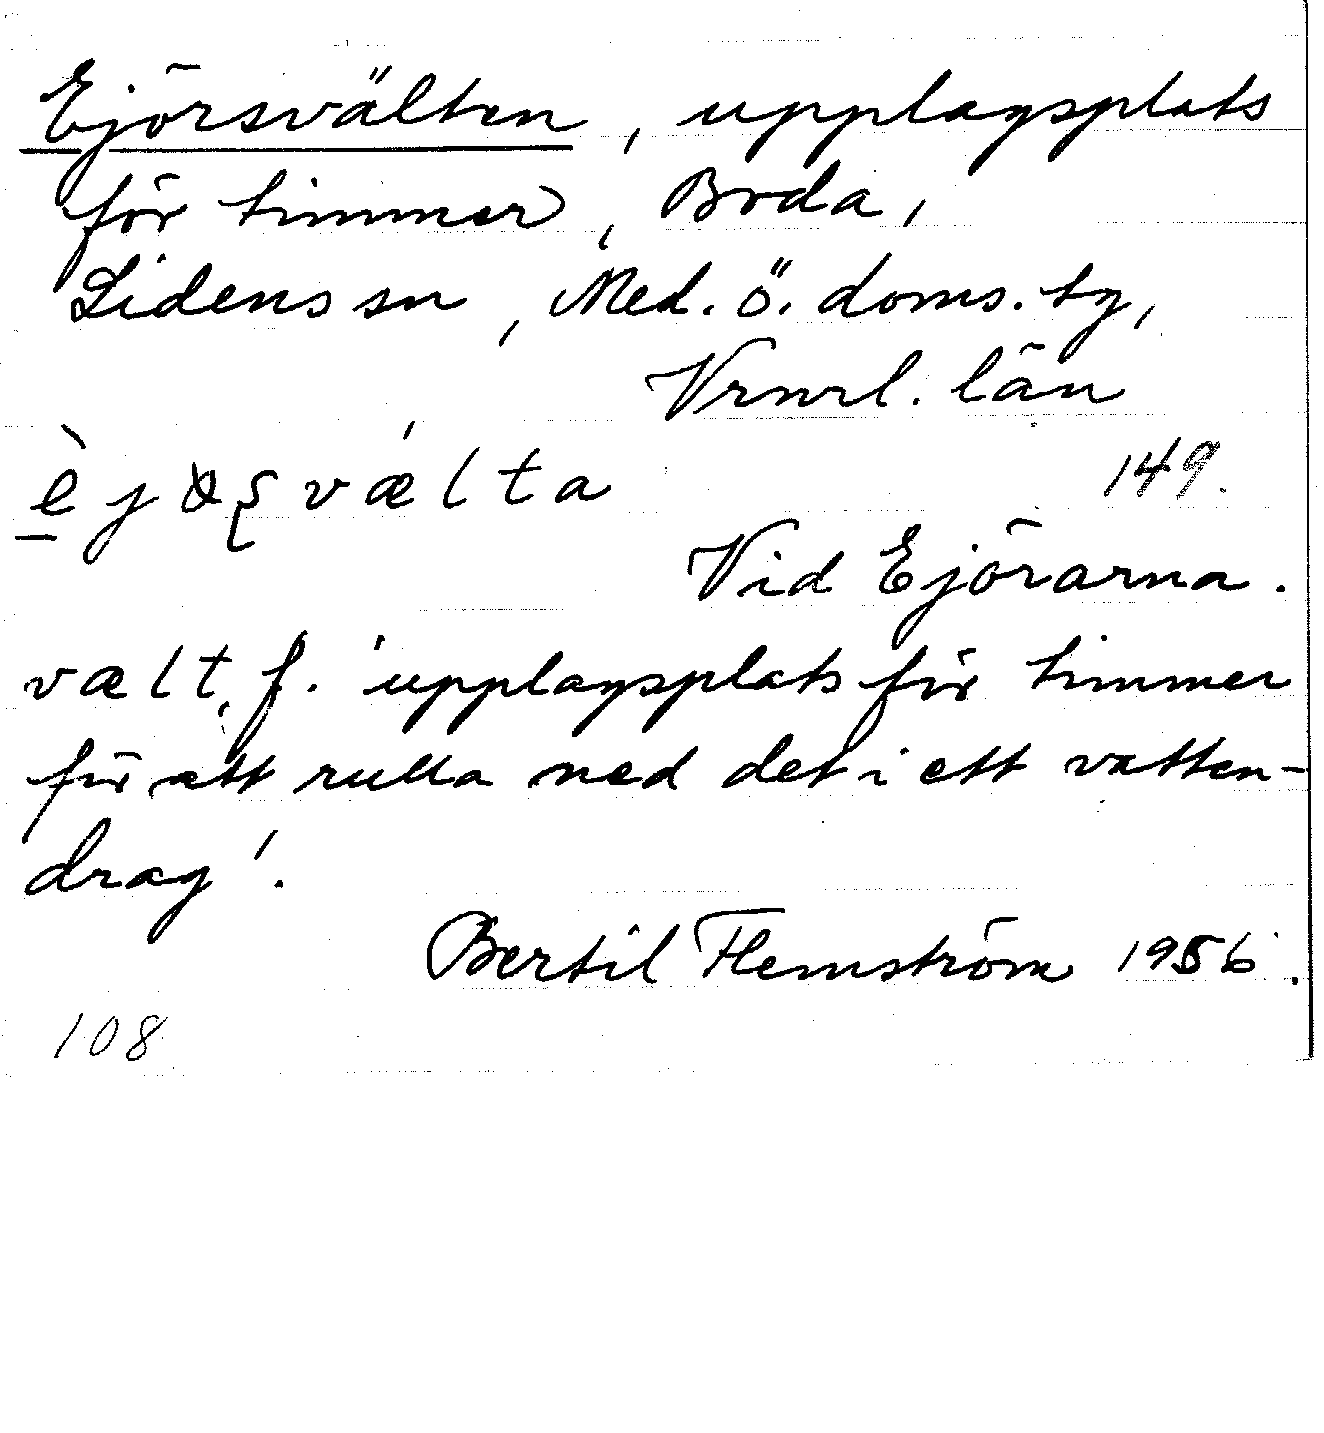 Ejörsvälten, upplagsplats
för timmer, Boda,
Lidens sn, Med. ö. doms. tg,
Vrnrl. län
149.
Vid Ejörarna.
vælt, f. 'upplagsplats för timmer
för att rulla ned det i ett vatten-
drag'.
Bertil Flemström 1956.
108